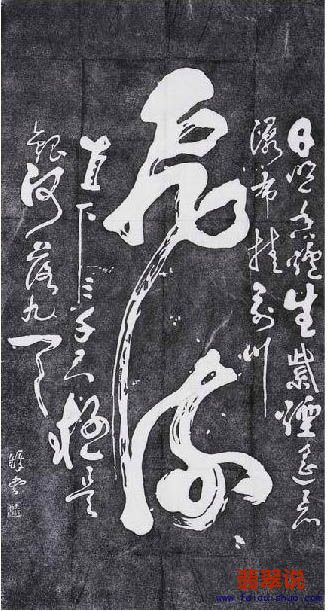 日照香爐生紫煙遥看
瀑布挂前川
飛流
直下三千尺疑是
銀河落九天
翡翠说
www.feicuishuo.com